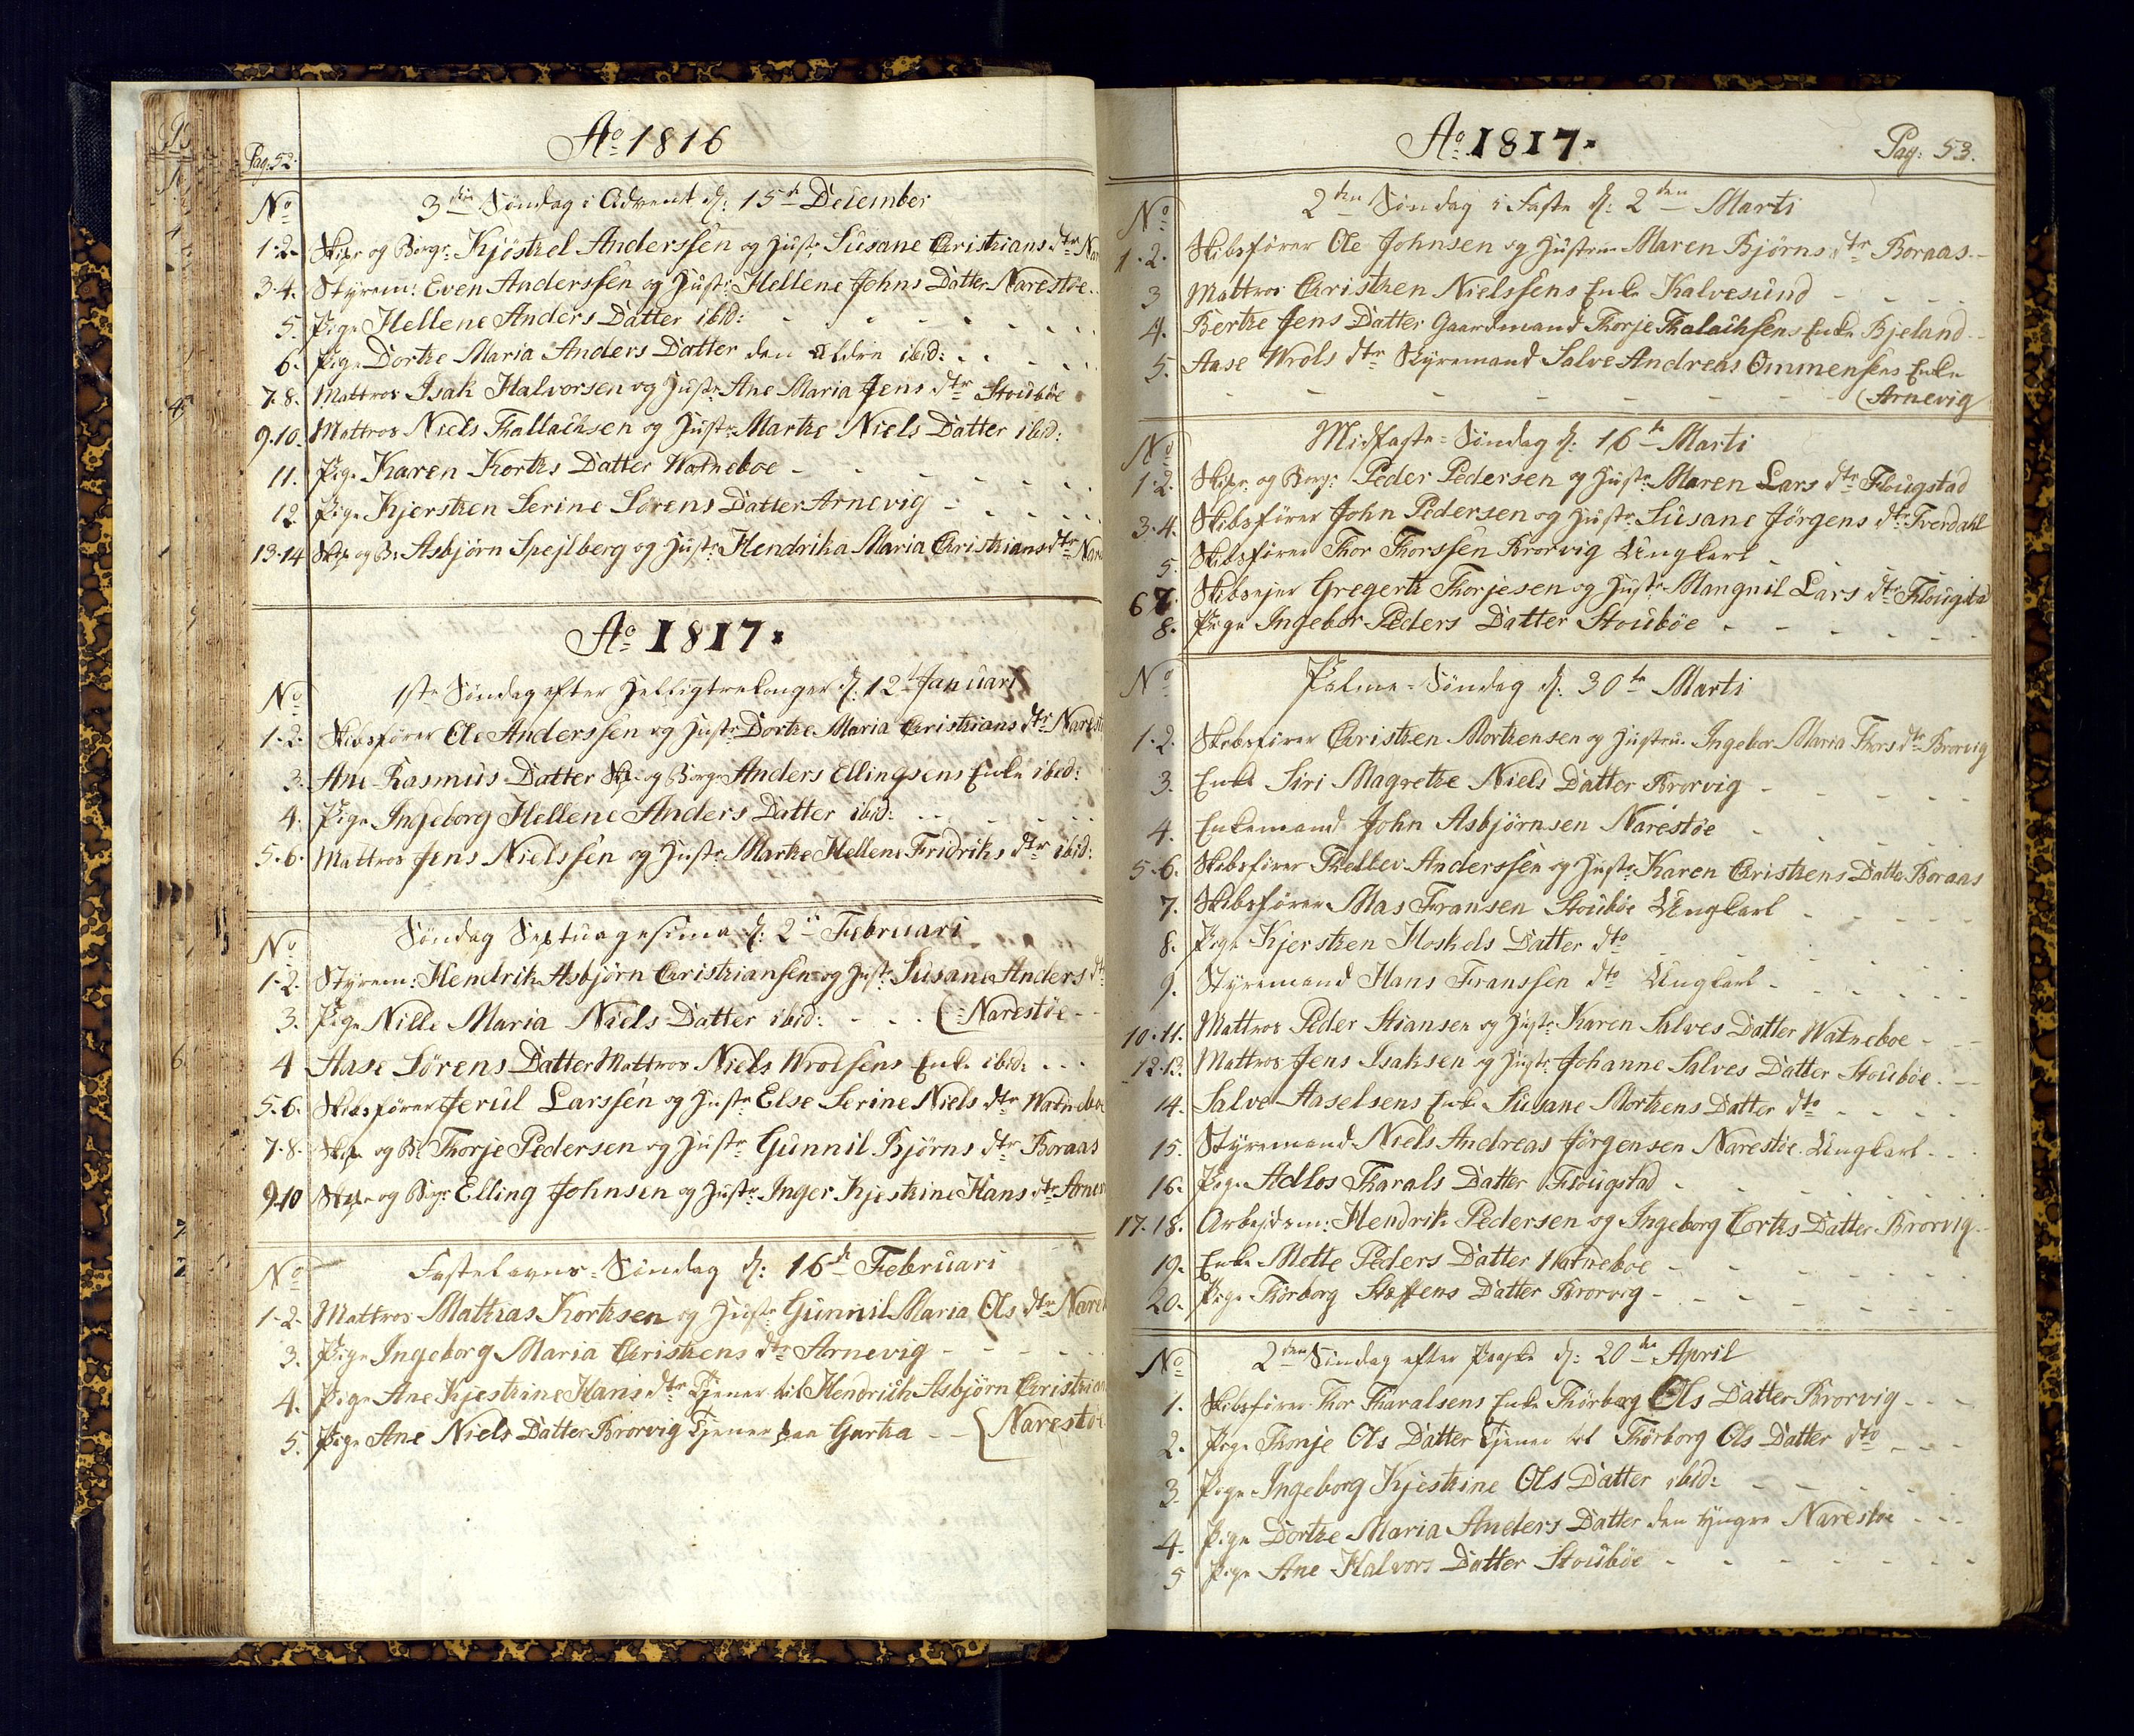 Pag: 52.
Ao 1816
No 3die Søndag i Advent d: 15de December
1-2. Skipr og Borgr: Kjøstel Anderssen og Hustr: Susane Christians dtr Nar
3-4. Styrem: Even Anderssen og Hustr: Hellene Johns Datter Narestøe
5. Pige Hellene Anders Datter ibid:
6. Pige Dorthe Maria Anders Datter den Ældre ibid:
7-8. Mattros Isak Halvorsen og Hustr: Ane Maria Jens dtr Stoubøe
9.10. Mattros Niels Thallachsen og Hustr: Marthe Niels Datter ibid:
11. Pige Karen Korths Datter Watneboe
12. Pige Kjersthen Serine Sørens Datter Arnevig
13-14 Skipr og B: Asbjørn Spejlberg og Hustr: Hendrika Maria Christians dtr Nare
Ao 1817.
No 1ste Søndag efter Helligtrekonger d: 12te Januari
1-2. Skibsfører Ole Anderssen og Hustr: Dorthe Maria Christians dtr Narest
3. Ane Rasmus Datter Skipr og Borgr Anders Ellingsens Enke ibid:
4. Pige Ingeborg Hellene Anders Datter ibid:
5-6. Mattros Jens Nielssen og Hustr: Marthe Hellene Fridriks dtr ibid:
No Søndag Septuagesima d: 2den Februari
1-2. Styrem: Hendrik Asbjørn Christiansen og Hustr: Susane Anders dtr
3. Pige Nille Maria Niels Datter ibid: (Narestøe
4 Aase Sørens Datter Mattros Niels Wrolsens Enke ibid:
5-6. Skibsfører Jerul Larssen og Hustr: Else Serine Niels dtr Watneboe
7-8. Skipr og B: Thorje Pedersen og Hustr: Gunnil Bjørns dtr Boraas
9-10 Skipr og Bogr: Elling Johnsen og Hustr: Inger Kjesthine Hans dtr Arnev
No Fastelavns-Søndag d: 16de Februari
1-2. Mattros Mathias Korthsen og Hustr: Gunnil Maria Ols dtr Narest
3. Pige Ingeborg Maria Christhens dtr Arnevig
4. Pige Ane Kjesthine Hans dtr Tjener til Hendrich Asbjørn Christian
5. Pige Ane Niels Datter Brorvig Tjener paa Gartha (Narestø
Ao 1817.
Pag: 53.
No 2den Søndag i Faste d: 2den Marti
1-2. Skibsfører Ole Johnsen og Hustrue Maren Bjørns dtr Boraas
3 Mattros Christhen Nielssens Enke Kalvesund
4. Berthe Jens Datter Gaardmand Thorje Thalachsens Enke Bjeland
5. Aase Wrols dtr Styremand Salve Andreas Ommensens Enke
(Arnevig
No Midfaste-Søndag d: 16de Marti
1-2. Skipr: og Borgr: Peder Pedersen og Hustr: Maren Lars dtr Flougstad
3-4. Skibsfører John Pedersen og Hustr: Susane Jørgens dtr Tverdahl
5. Skibsfører Thor Thorssen Brorvig Ungkarl
6 7. Skibsejer Gregerth Thorjesen og Hustr: Mangnil Lars dtr Flougstad
8. Pige Ingebor Peders Datter Stoubøe
No Palme-Søndag d: 30te Marti
1-2. Skibsfører Christhen Morthensen og Hustrue Ingebor Maria Thors dtr Brorvig
3. Enke Siri Magrethe Niels Datter Brorvig
4. Enkemand John Asbjørnsen Narestøe
5-6. Skibsfører Thellev Anderssen og Hustr: Karen Christhens Datter Boraas
7. Skibsfører Mas Fransen Stoubøe Ungkarl
8. Pige Kjersthen Hoskels Datter dto
9. Styremand Hans Franssen dto Ungkarl
10-11. Mattros Peder Stiansen og Hustr: Karen Salves Datter Watneboe
12-13. Mattros Jens Isaksen og Hustr: Johanne Salves Datter Stoubøe
14. Salve Aaselsens Enke Susane Morthens Datter dto
15. Styremand Niels Andreas Jørgensen Narestøe Ungkarl
16. Pige Adlos Tharals Datter Flougstad
17-18. Arbejdsm: Hendrik Pedersen og Ingeborg Corths Datter Brorvig
19. Enke Mette Peders Datter Watneboe
20. Pige Thorborg Steffens Datter Brorvig
No 2den Søndag efter Paaske d: 20de April
1. Skibsfører Thor Tharalsens Enke Thorborg Ols Datter Brorvig
2. Pige Thonje Ols Datter Tjener til Thorborg Ols Datter dto
3. Pige Ingeborg Kjesthine Ols Datter ibid:
4. Pige Dorthe Maria Anders Datter den Yngre Narestøe
5 Pige Ane Halvors Datter Stoubøe